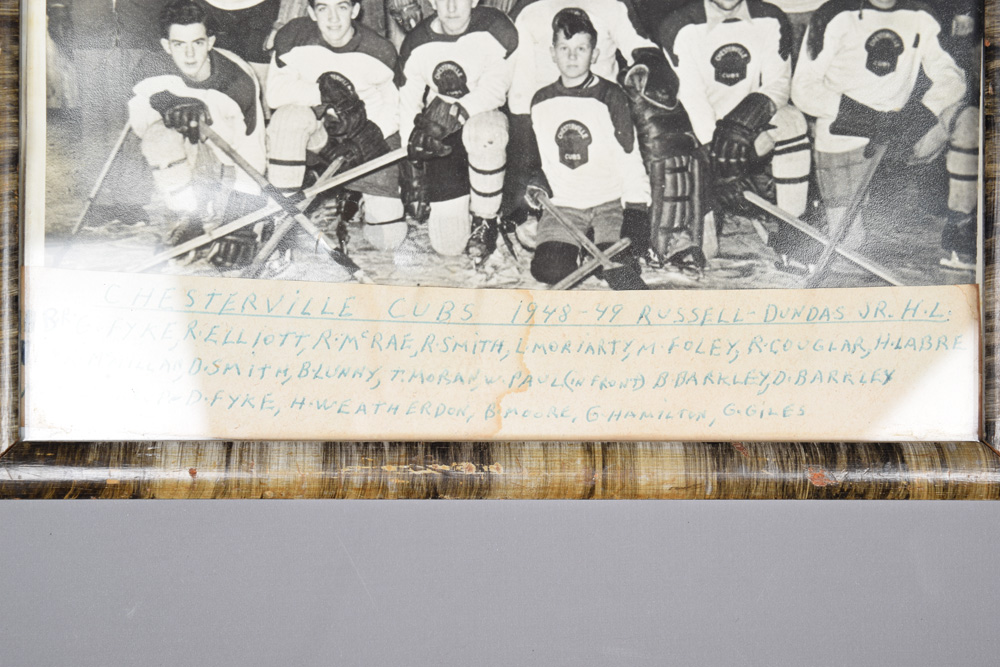 CHESTERVILLE CUBS
CHESTERVILLE CUBS
CHESTERVILLE CUBS
CHESTERVILLE CUBS 1948-49 RUSSELL-DUNDAS JR. H.L.
FYKE, R. ELLIOTT, R. McRAE, R. SMITH, L. MORIARTY, M. FOLEY, R. COUGLAR, H. LABRE
D. SMITH, B. LUNNY, T. MORAN, W. PAUL (IN FRONT) B. BARKLEY, D. BARKLEY
D. FYKE, H. WEATHERDON, B. MOORE, G. HAMILTON, G. GILES